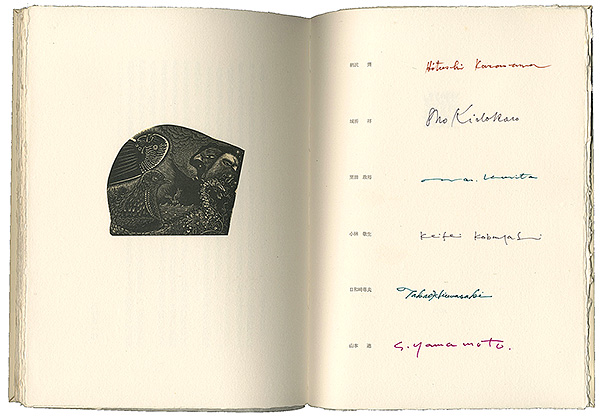 柄沢 齊 Hitoshi Karasawa
城所 祥 Sho Kidokoro
栗田 政裕 Mas. Kurita
小林 敬生 Keisei Kobayashi
日和崎尊夫 Takao Hiwasaki
山本 進 S. Yamamoto.